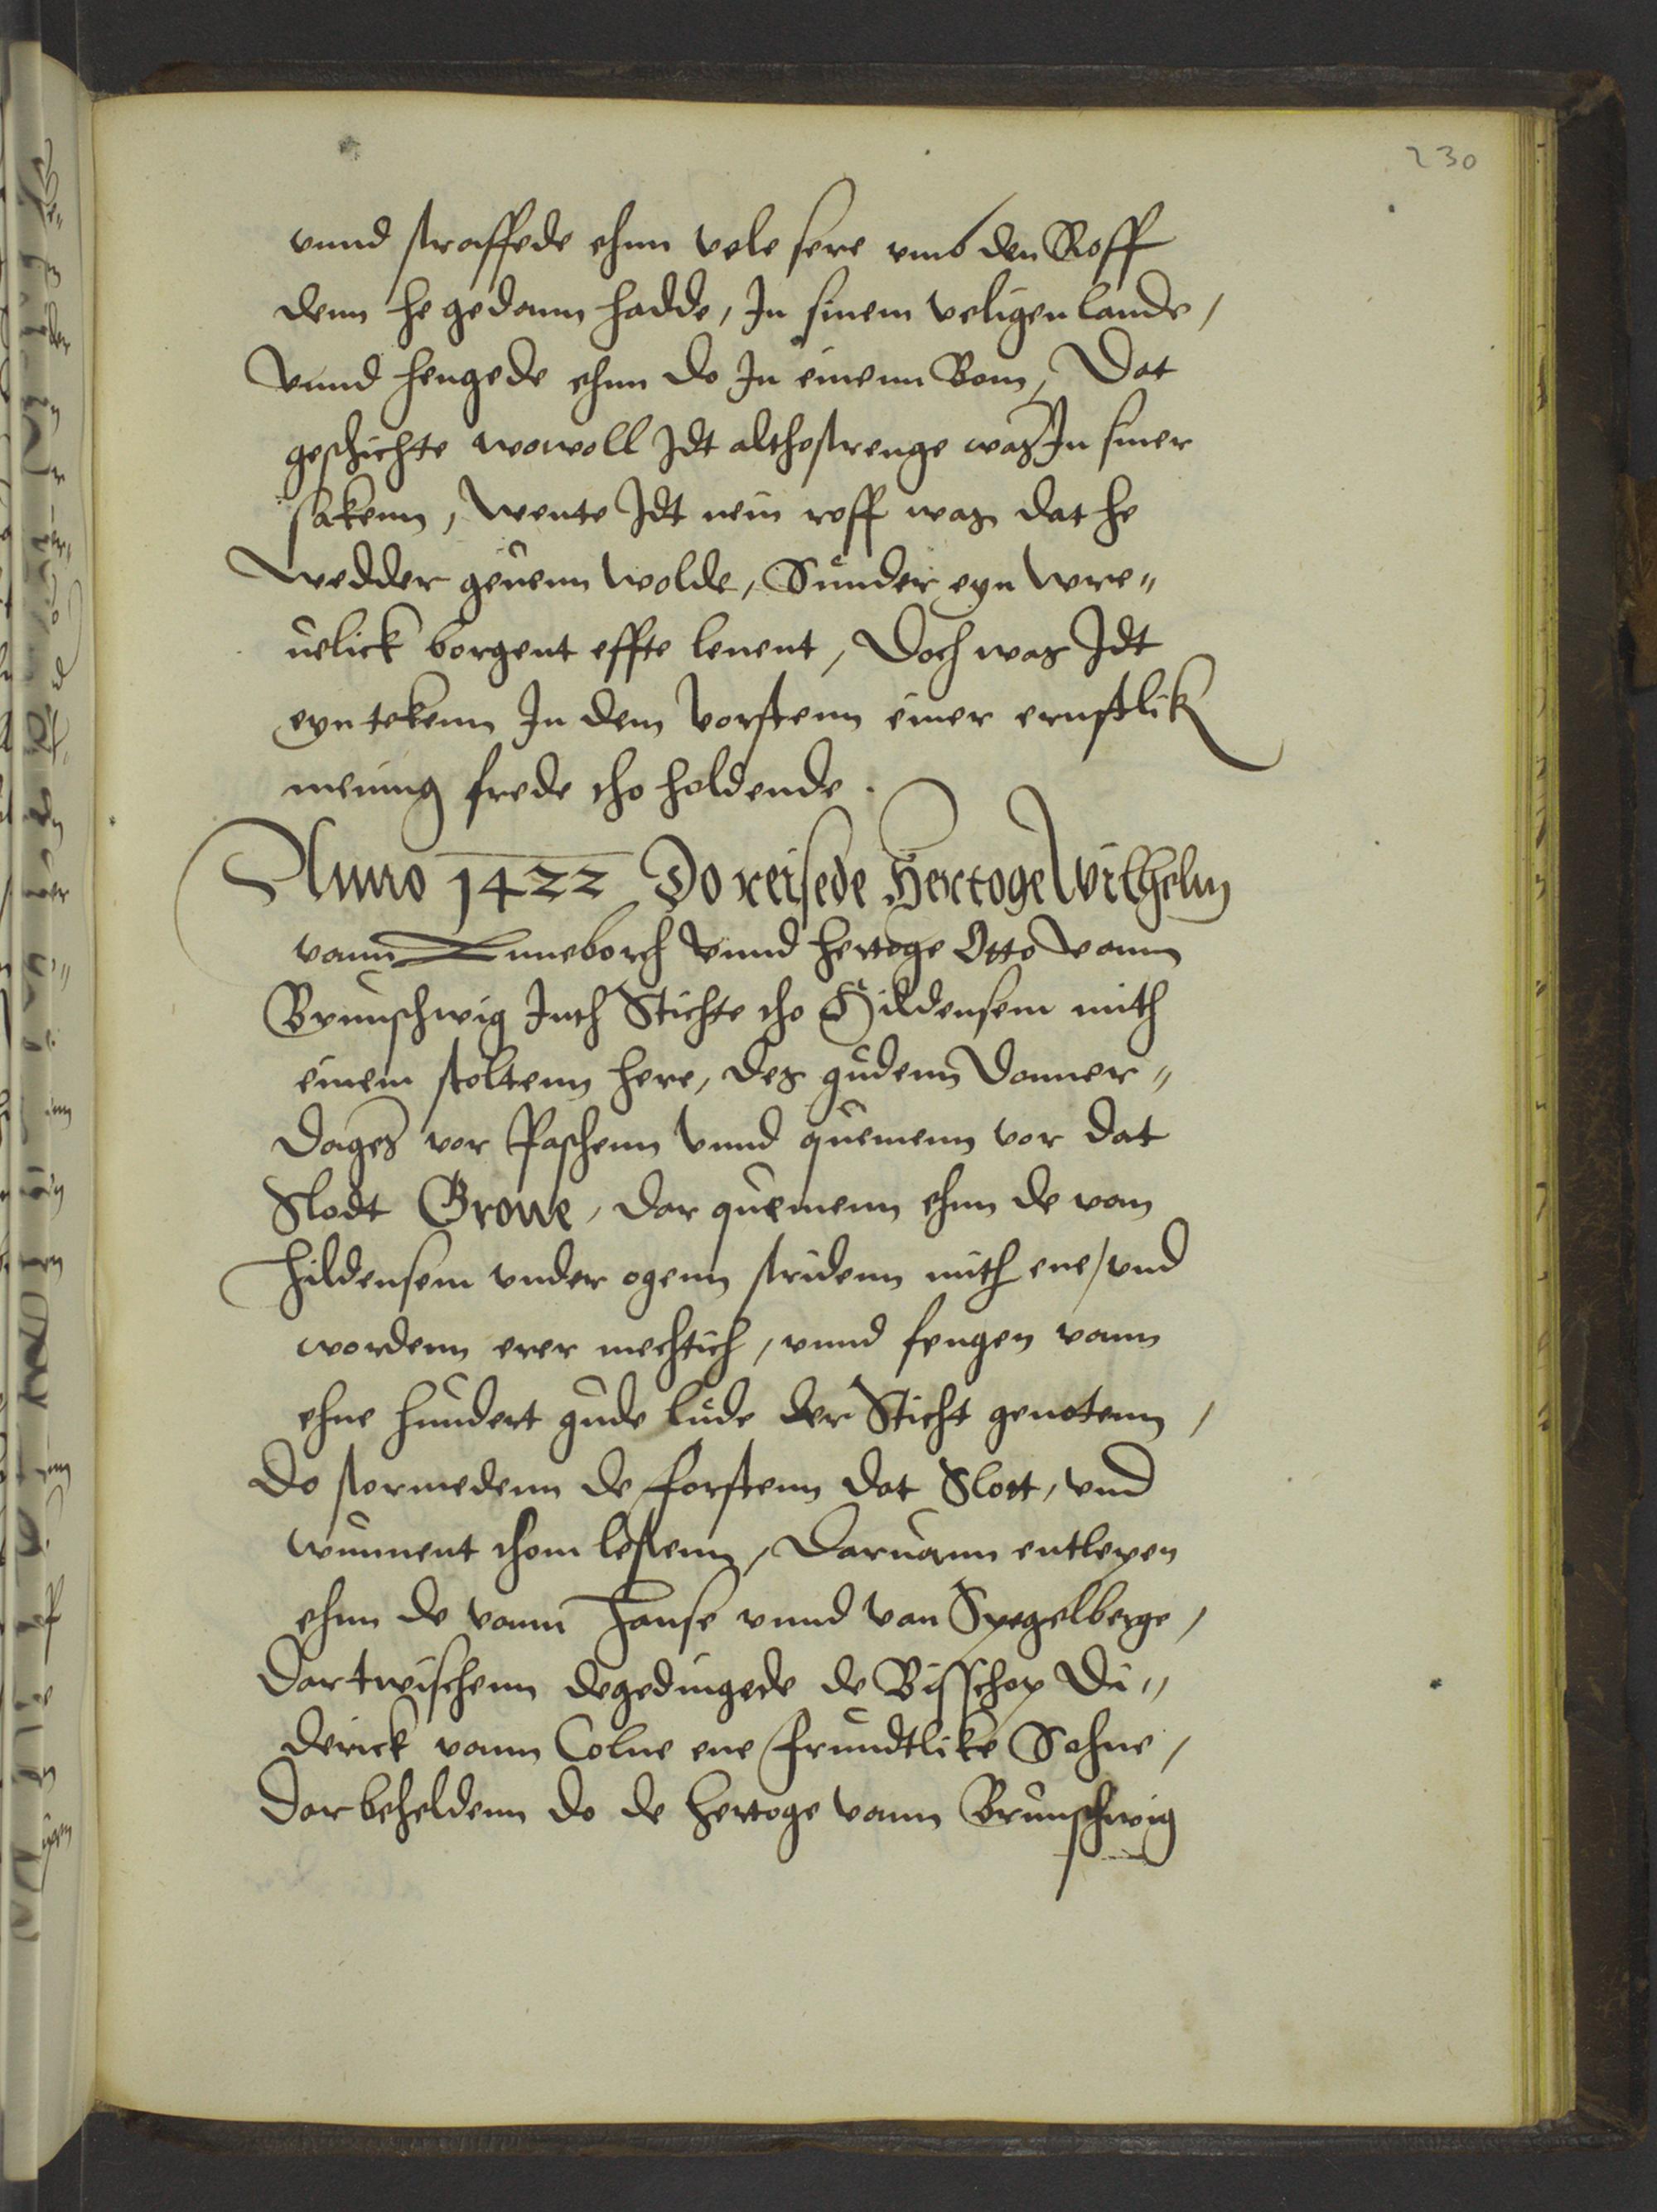 230
vnnd straffede ehnn vele sere vmb den Roff
denn he gedann hadde, In sinem veligen lande,
Vnnd hengede ehnn do In einenn Bom, Dat
geschichte wowoll Idt althostrenge was In siner
sakenn, Wente Idt nein roff was dat he
Wedder geuenn wolde, Sunder eyn wre„
uelick borgent effte lenent, Doch was Idt
eyn tekenn In dem Vorstenn einer ernstlik
mening frede tho holdende.
Anno 1422 Do reisede Hertoge Wilhelm
vann Luneborch Vnnd hertoge Otto vann
Brunschwig Inth Stichte tho Hildensem mith
einem stoltenn here, des gudenn Donner„
Dages vor Paschenn Vnnd quemenn vor dat
Slodt Grone, dar quemenn ehnn de van
Hildensem vnder ogenn stridenn mith ene, vnd
wordenn erer mechtich, vnnd fengen vann
ehne hundert gude lude der Sticht genotenn,
Do stormedenn de forstenn dat Slott, vnd
wunnent thom lestenn, Daruann entlepen
ehnn de vann Hanse vnnd van Spegelberge,
Dar twischenn degedingede de Bisschop Di„
derick vann Colne ene frundtlike Sohne,
Dar beheldenn do de hertoge vann Brunschwig